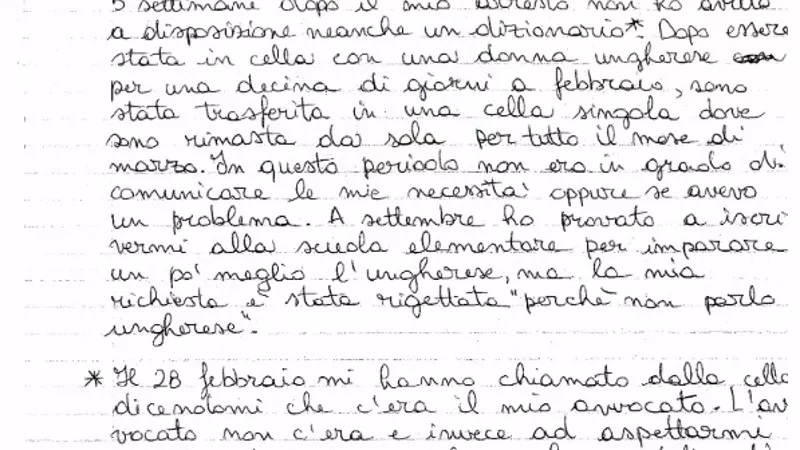 5 settimane dopo il mio arresto non ho avuto
a disposizione neanche un dizionario*. Dopo essere
stata in cella con una donna ungherese
per una decina di giorni a febbraio, sono
stata trasferita in una cella singola dove
sono rimasta da sola per tutto il mese di
marzo. In questo periodo non ero in grado di
comunicare le mie necessita' oppure se avevo
un problema. A settembre ho provato a iscri
vermi alla scuola elementare per imparare
un po' meglio l'ungherese, ma la mia
richiesta e' stata rigettata "perchè non parlo
ungherese".
* Il 28 febbraio mi hanno chiamato dalla cella
dicendomi che c'era il mio avvocato. L'av
vocato non c'era e invece ad aspettarmi